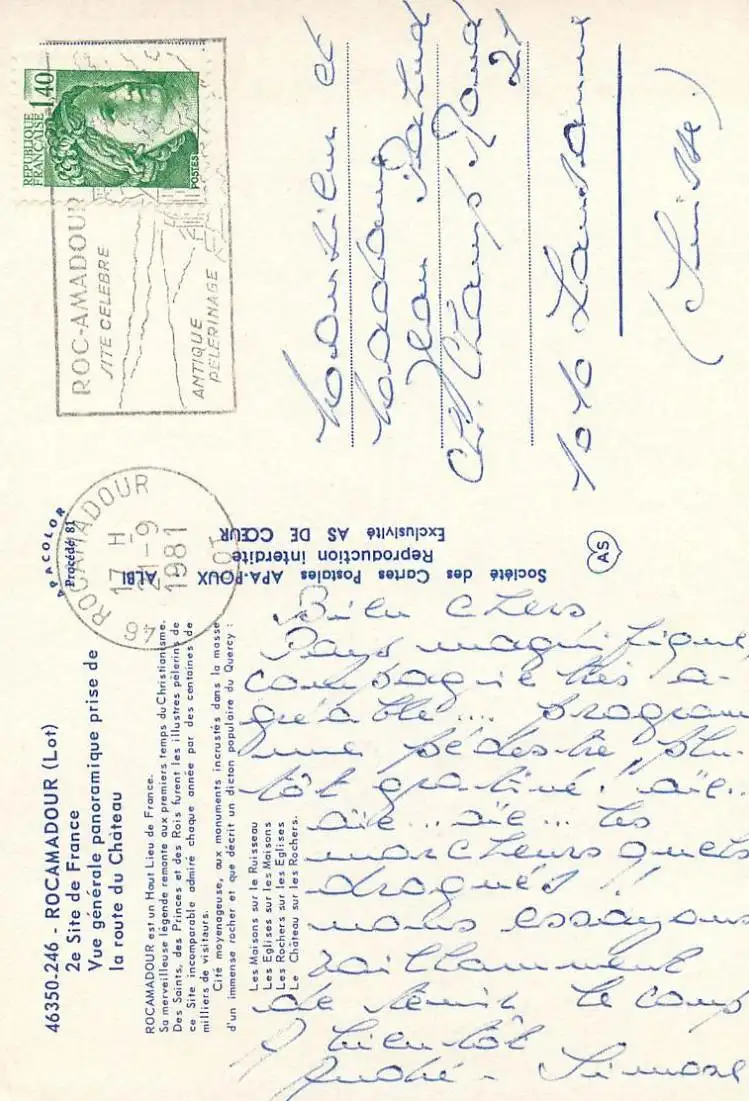 46350-246 - ROCAMADOUR (Lot)
2e Site de France
Vue générale panoramique prise de
la route du Château
ROCAMADOUR est un Haut Lieu de France.
Sa merveilleuse légende remonte aux premiers temps du Christianisme.
Des Saints, des Princes et des Rois furent les illustres pèlerins de
ce Site incomparable admiré chaque année par des centaines de
milliers de visiteurs.
Cité moyenageuse, aux monuments incrustés dans la masse
d'un immense rocher et que décrit un dicton populaire du Quercy :
Les Maisons sur le Ruisseau
Les Eglises sur les Maisons
Les Rochers sur les Eglises
Le Château sur les Rochers.
Bien chers
Pays magnifique,
compagnie très a-
gréable... program
me pédestre, plu-
tôt gratiné! aïe..
aïe... aïe... les
marcheurs quels
drogués!!
nous essayons
vaillamment
de tenir le coup
A bientôt
André - Simone
APACOLOR
Procédé 81
Société des Cartes Postales APA-POUX ALBI
Reproduction interdite
Exclusivité AS DE CŒUR
AS
46 ROCAMADOUR
17 H
21-9
1981
LOT
ROC-AMADOUR
SITE CELEBRE
ANTIQUE
PÉLERINAGE
REPUBLIQUE
FRANÇAISE
1,40
POSTES
Monsieur et
Madame
Jean
Ch. Champ Rond
21
1010 Lausanne
(Suisse)